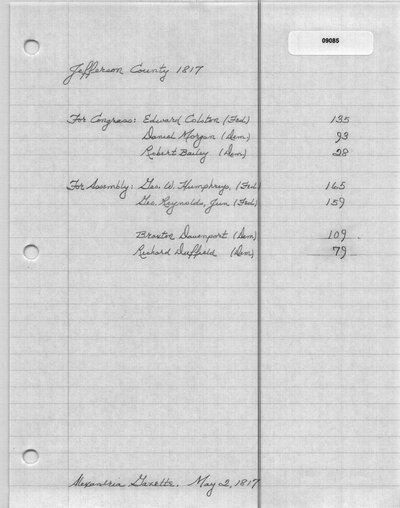 09085
Jefferson County 1817
For Congress: Edward Colston (Fed) 135
Daniel Morgan (Dem) 93
Robert Bailey (Dem) 28
For Assembly: Geo. W. Humphreys, (Fed) 165
Geo. Reynolds, Jun (Fed) 159
Braxton Davenport (Dem) 109
Richard Duffield (Dem) 79
Alexandria Gazette. May 2, 1817